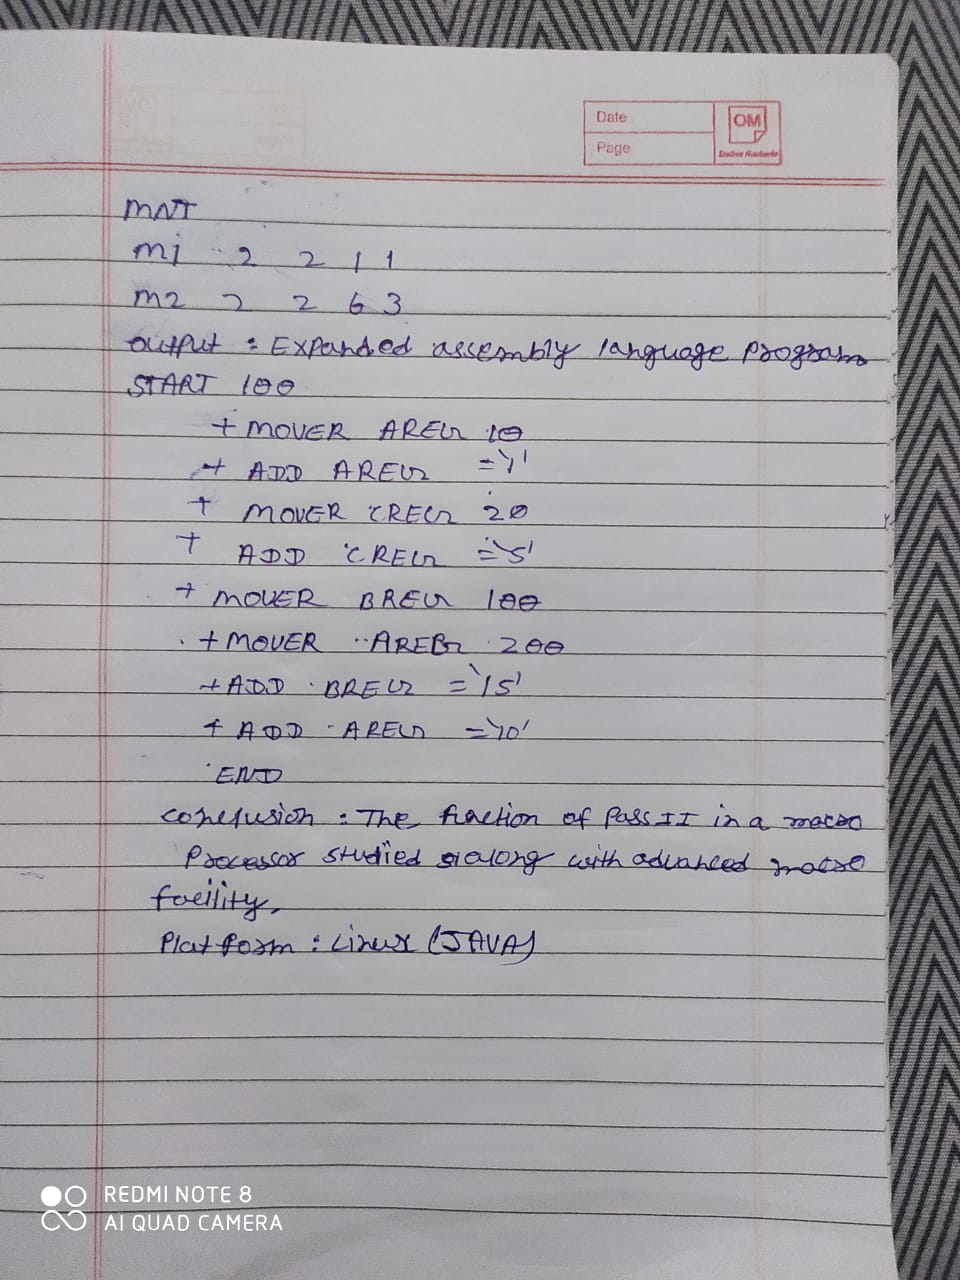 Date
Page
OM
MNT
M1 2 2 1 1
M2 2 2 6 3
output : Expanded assembly language program
START 100
+ MOVER AREG 10
+ ADD AREG ='1'
+ MOVER CREG 20
+ ADD CREG ='5'
+ MOVER BREG 100
+ MOVER AREG 200
+ ADD BREG ='15'
+ ADD AREG ='10'
END
conclusion : The function of Pass II in a macro
Processor studied along with advanced macro
facility,
Platform : Linux (JAVA)
REDMI NOTE 8
AI QUAD CAMERA